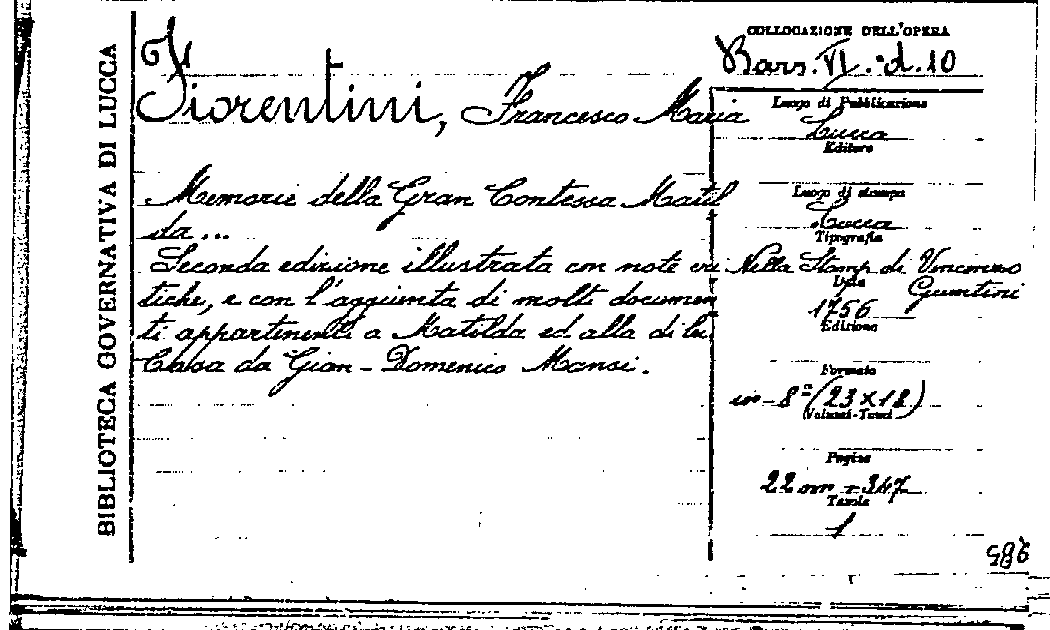 BIBLIOTECA GOVERNATIVA DI LUCCA
Fiorentini, Francesco Maria
Memorie della Gran Contessa Matil
da...
Seconda edizione illustrata con note cri
tiche, e con l'aggiunta di molti documen
ti appartenenti a Matilda ed alla di lei
Casa da Gian-Domenico Mansi.
COLLOCAZIONE DELL'OPERA
Bors. VI.-d.10
Luogo di Pubblicazione
Lucca
Editore
Luogo di stampa
Lucca
Tipografia
Nella Stamp. di Vincenzo
Giuntini
Data
1756
Edizione
Formato
in-8° (23x18)
Volumi-Tomi
Pagine
22 nn - 347
Tavole
1